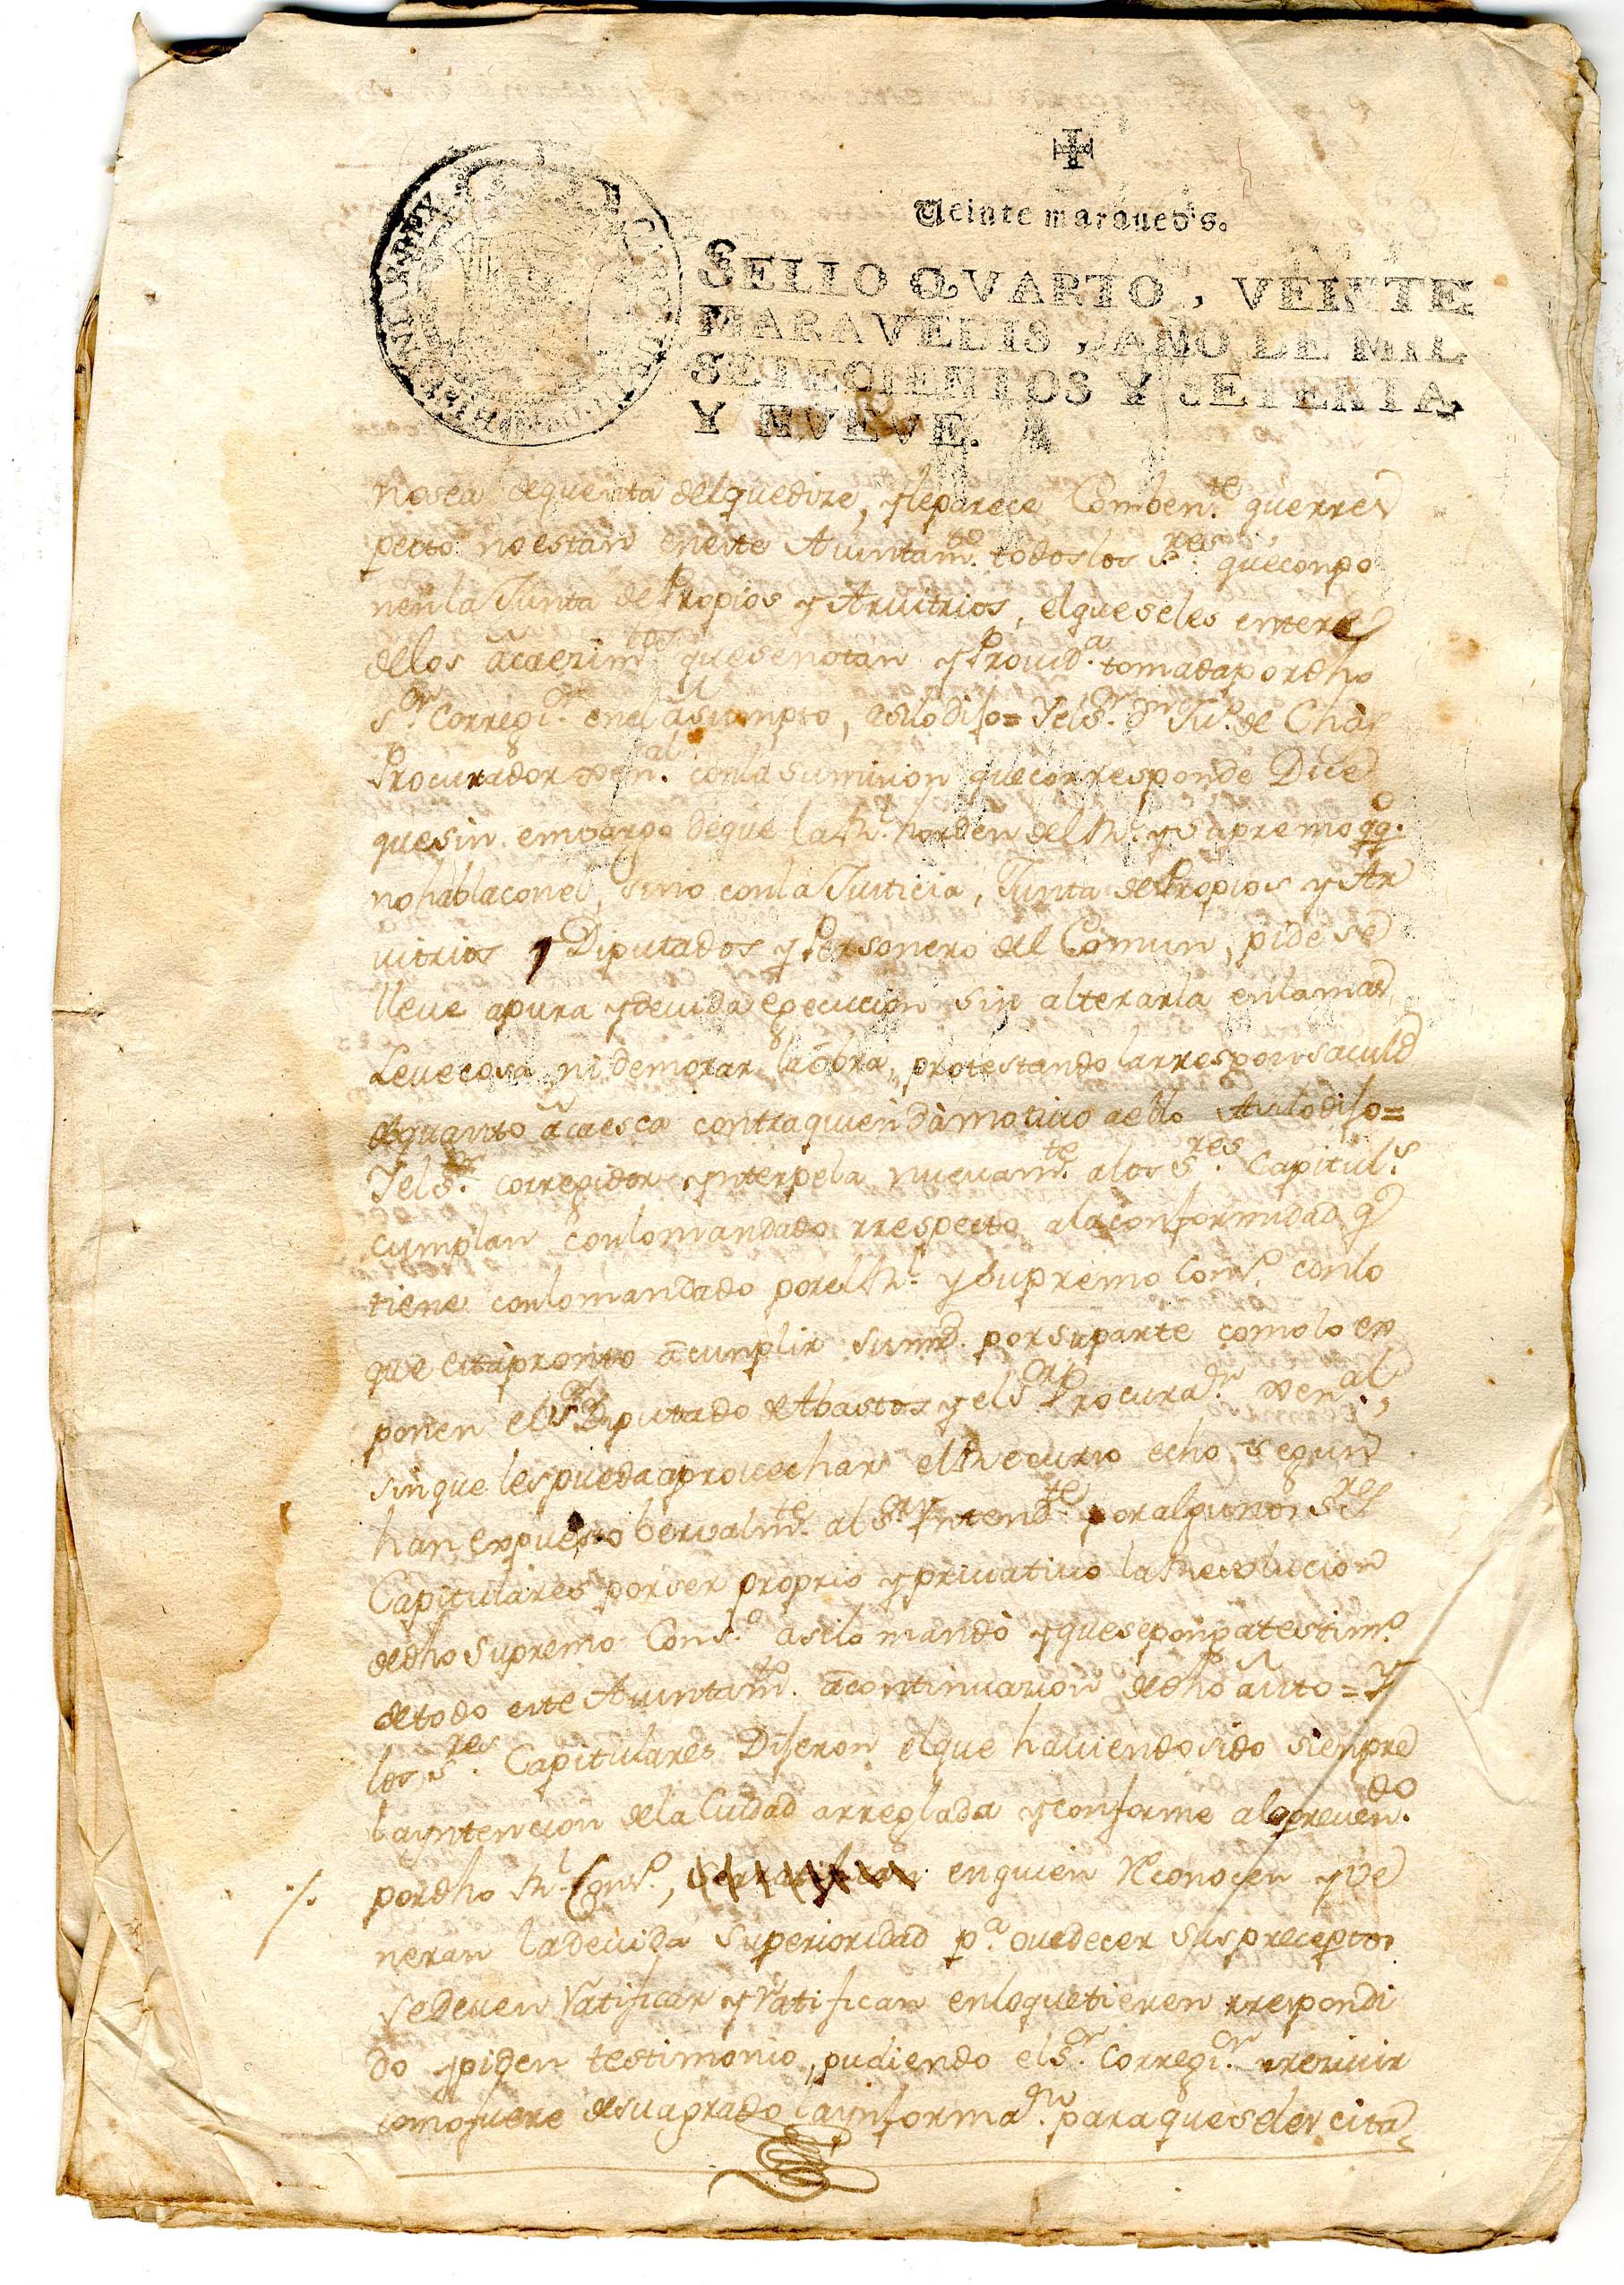 Veinte maraueds.
SELLO QVARTO, VEINTE
MARAVEDIS, AÑO DE MIL
SETECIENTOS Y SETENTA
Y NVEVE.
CAROLUS III D G HISPANIAR REX
no sea de quenta del que dize, y le parece Comben.te que rres
pecto no estan en este Aiuntam.to todos los S.res que conpo
nen la Junta de Propios y Arvitrios, el que se les entere
de los acaezim.tos que se notan y Provid.a tomada por dho
S.or Corregi.or en el asumpto, asilo dijo= Y el S.or Dn Ju.o de
Procurador Gen.al con la sumision que corresponde Dice
que sin embargo de que la Rl. horden del Rl. y Supremo
no habla con el, sino con la Justicia, Junta de Propios y Ar
vitrios y Diputados y Personero del Comun, pide se
lleve a pura y devida egecuccion sin alterarla en la mas
Leve cosa ni demorar la obra, protestando la rresponsavild
de quanto acaesca contra quien dà motivo a ello Asilo dijo=
Y el S.or corregidor ynterpela nuevam.te a los S.res Capitul.s
cumplan con lo mandado rrespecto a la conformidad q
tiene con lo mandado por el Rl. y Supremo Cons.o con lo
que està pronto a cunplir su md. por su parte como lo ex
ponen el S.or Diputado de Abastos y el S.or Procurad.r Gen.al,
sin que les pueda aprovechar el Recurso echo segun
han expuesto bervalm.te al S.or Yntend.te por algunos S.res
Capitulares por ser proprio y privativo la Resolucion
de dho Supremo Cons.o asilo mandò y que se ponga testim.o
de todo este Aiuntam.to a continuazion de dho auto= Y
los S.res Capitulares Dijeron el que haviendo sido sienpre
la yntencion de la Ciudad arreglada y conforme al preven.do
por dho Rl. Cons.o, en quien Reconocen y ve
neran la devida Superioridad p.a ovedecer sus preceptos
se Deven Ratificar y Ratifican en lo que tienen rrespondi
do y piden testimonio, pudiendo el S.or Corregi.or rrecivir
como fuere de su agrado la ynforma.on para que se les cita